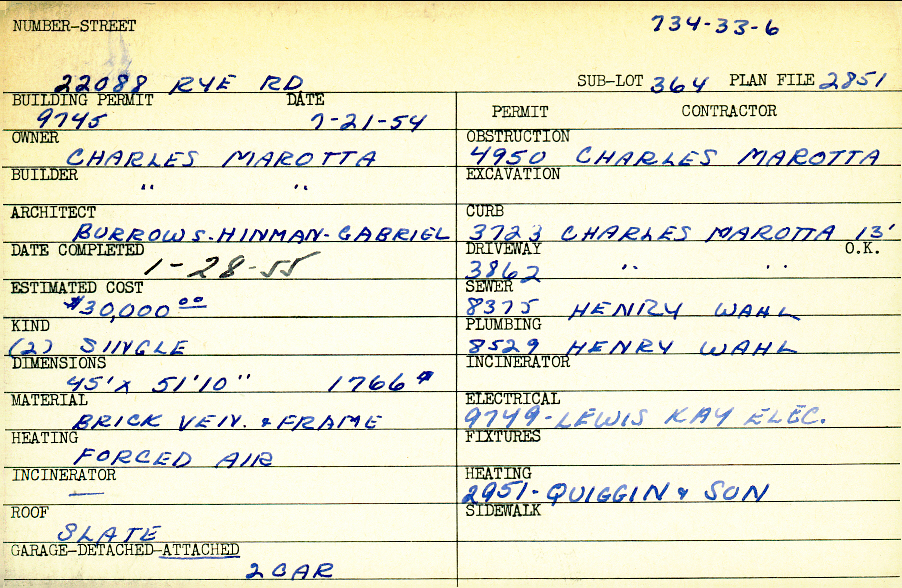 NUMBER-STREET
734-33-6
22088 RYE RD
SUB-LOT 364 PLAN FILE 2851
BUILDING PERMIT DATE
9745 7-21-54
PERMIT CONTRACTOR
OWNER
CHARLES MAROTTA
OBSTRUCTION
4950 CHARLES MAROTTA
BUILDER
" "
EXCAVATION
ARCHITECT
BURROWS-HINMAN-GABRIEL
CURB
3723 CHARLES MAROTTA 13'
DATE COMPLETED
1-28-55
DRIVEWAY O.K.
3862 " "
ESTIMATED COST
$30,000 00
SEWER
8375 HENRY WAHL
KIND
(2) SINGLE
PLUMBING
8529 HENRY WAHL
DIMENSIONS
45' x 51'10" 1766 #
INCINERATOR
MATERIAL
BRICK VEN. & FRAME
ELECTRICAL
9749-LEWIS KAY ELEC.
HEATING
FORCED AIR
FIXTURES
INCINERATOR
—
HEATING
2951-QUIGGIN & SON
ROOF
SLATE
SIDEWALK
GARAGE-DETACHED-ATTACHED
2 CAR